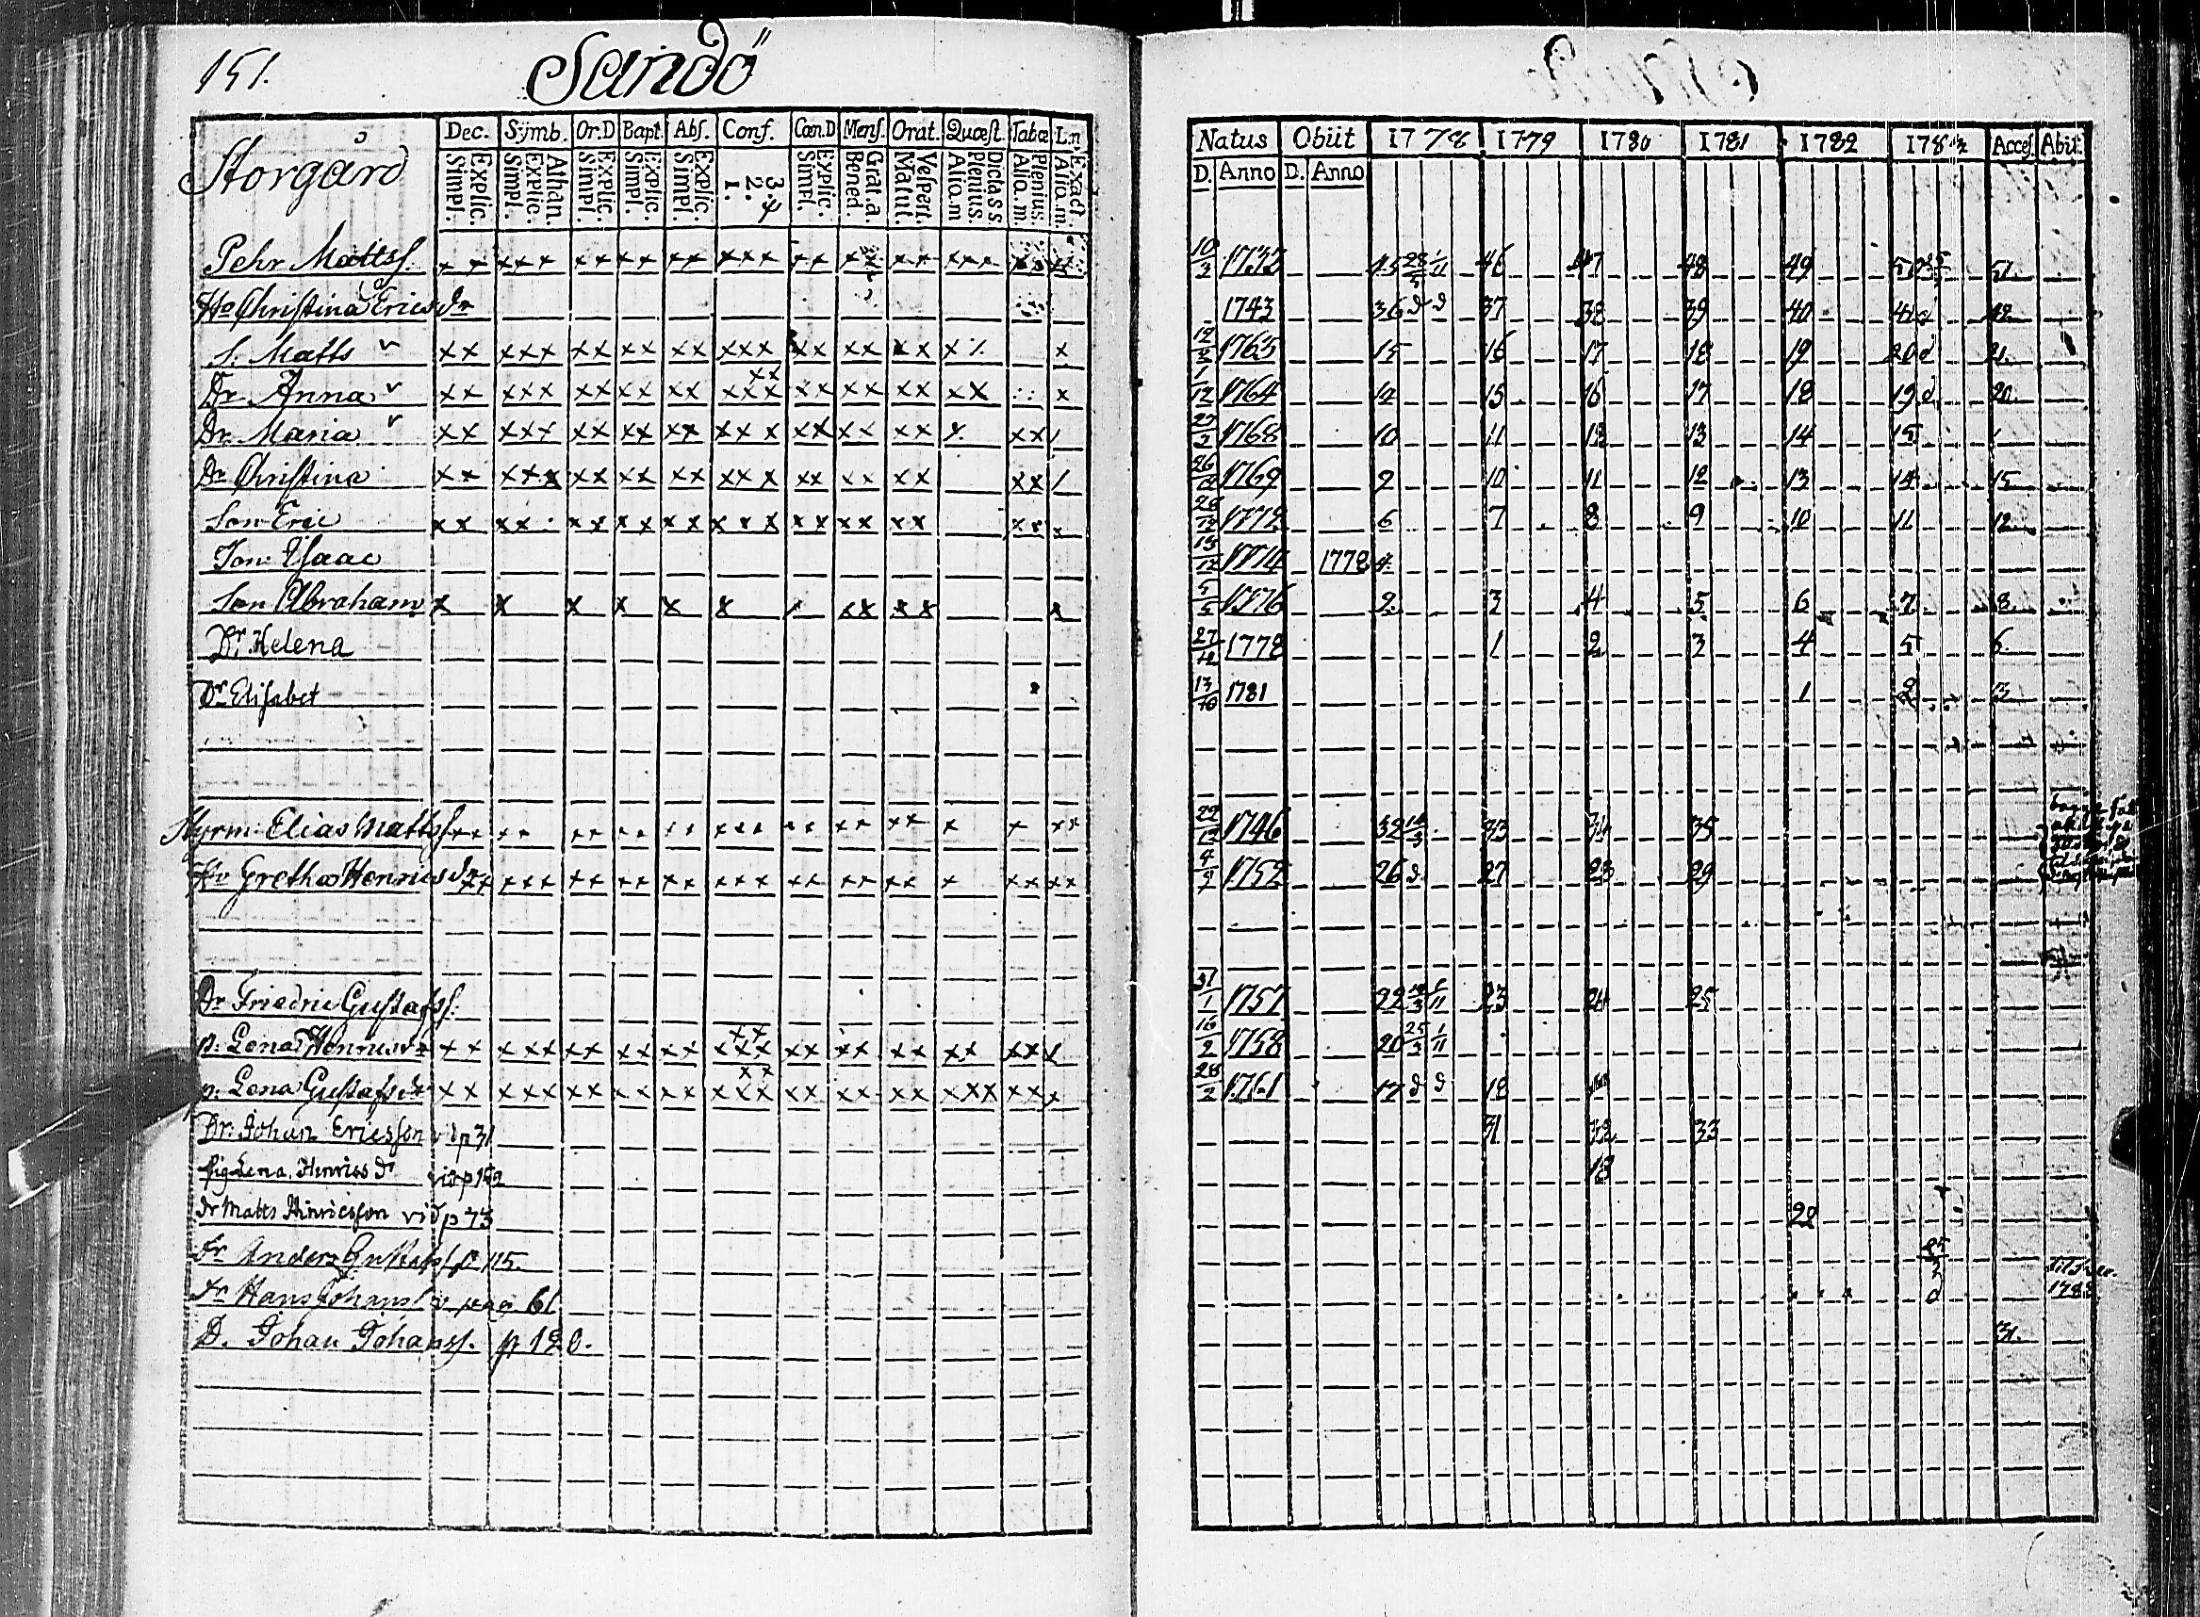 151.
Sandö
Storgård
Dec. Symb. Or.D Bapt. Abs. Conf. Cœn.D Mens. Orat. Quæst. Tabœ
Simpl. Explic. Simpl. Explic. Athan. Simpl. Explic. Simpl. Explic. Simpl. Explic. 1. 2. 3. 4 Simpl. Explic. Bened. Grat.a. Matut. Vespert. Alio.m Plenius. Dicta s s. Alio.m. Plenius. Alio.m. Exact.
Pehr Mattss.
Christina Ericsdr
S. Matts
Dr Anna
Dr. Maria
Dr Christina
Son Eric
Son Isaac
Son Abraham
Dr Helena
Dr Elisabet
Styrm: Elias Mattss
Gretha Henricsdr
Dr Friedric Gustafss.
p. Lena Henricsdr
p. Lena Gustafsdr
Dr. Johan Ericsson vid p 31
pig Lena Henricsdr vid p 152
dr Matts Hinricsson vid p 73
Dr Anders Gustafss p 115.
Dr Hans Johanss v pag 61
D. Johan Johanss. p 120.
Natus Obiit 1778 1779 1780 1781 1782 1783 Acces. Abit.
D. Anno D. Anno
10/3 1733 45 46 47 48 49 50 51.
1743 36 d d 37 38 39 40 41 d 42.
1763 15 16 17 18 19 20 d 21.
1/12 1764 14 15 16 17 18 19 d. 20.
1768 10 11 12 13 14 15
1769 9 10 11 12 13 14 15
1772 6 7 8 9 10 11 12
1774 1778 4.
5/5 1776 2. 3 4 5 6 7 8
27/12 1778 1 2 3 4 5 6.
13/10 1781 1 2 3
1746 32 33 34 35
1752 26 d. 27 28 29
31/1 1757 22 23 24 25
16/2 1758 20 25/3 1/11
28/2 1761 17 d d 18
31 32 33
18
22
25/3
d
31.